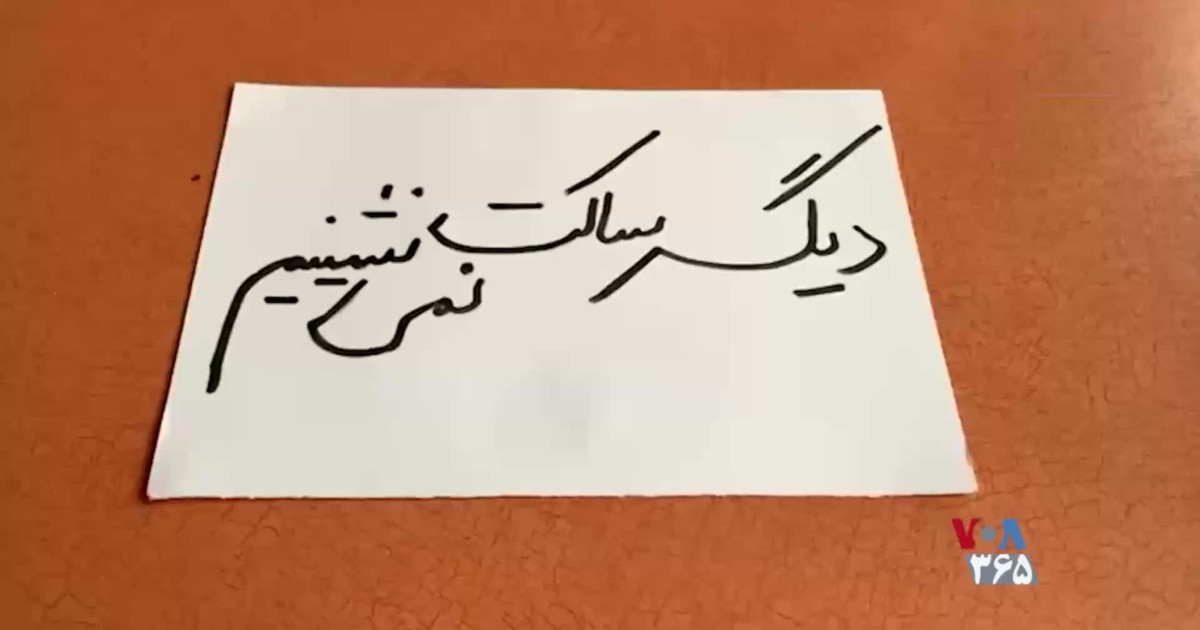 دیگر ساکت نمی نشینیم
VOA
۳۶۵